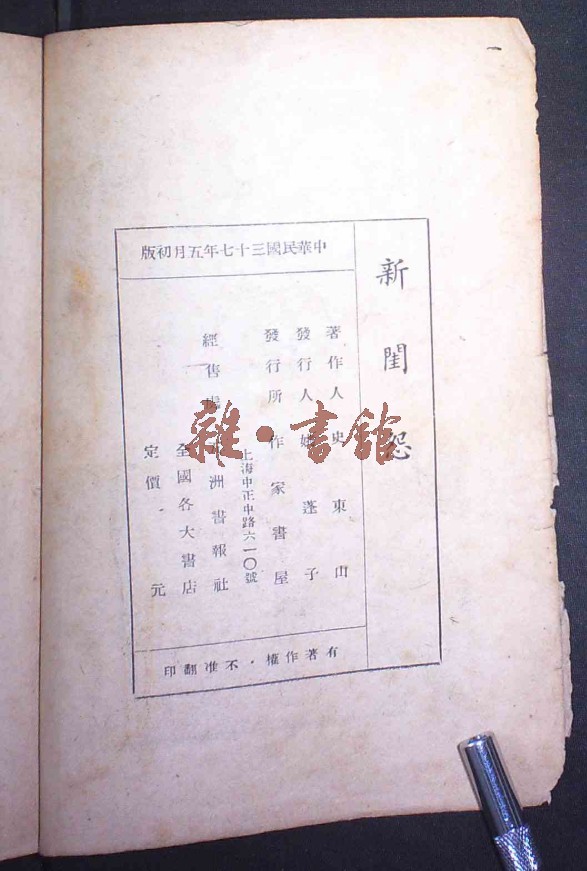 新閨怨
中華民國三十七年五月初版
著作人 史東山
發行人 姚蓬子
發行所 作家書屋
上海中正中路六一〇號
經售處 洲書報社
全國各大書店
定價・元
有著作權・不准翻印
雜・書館